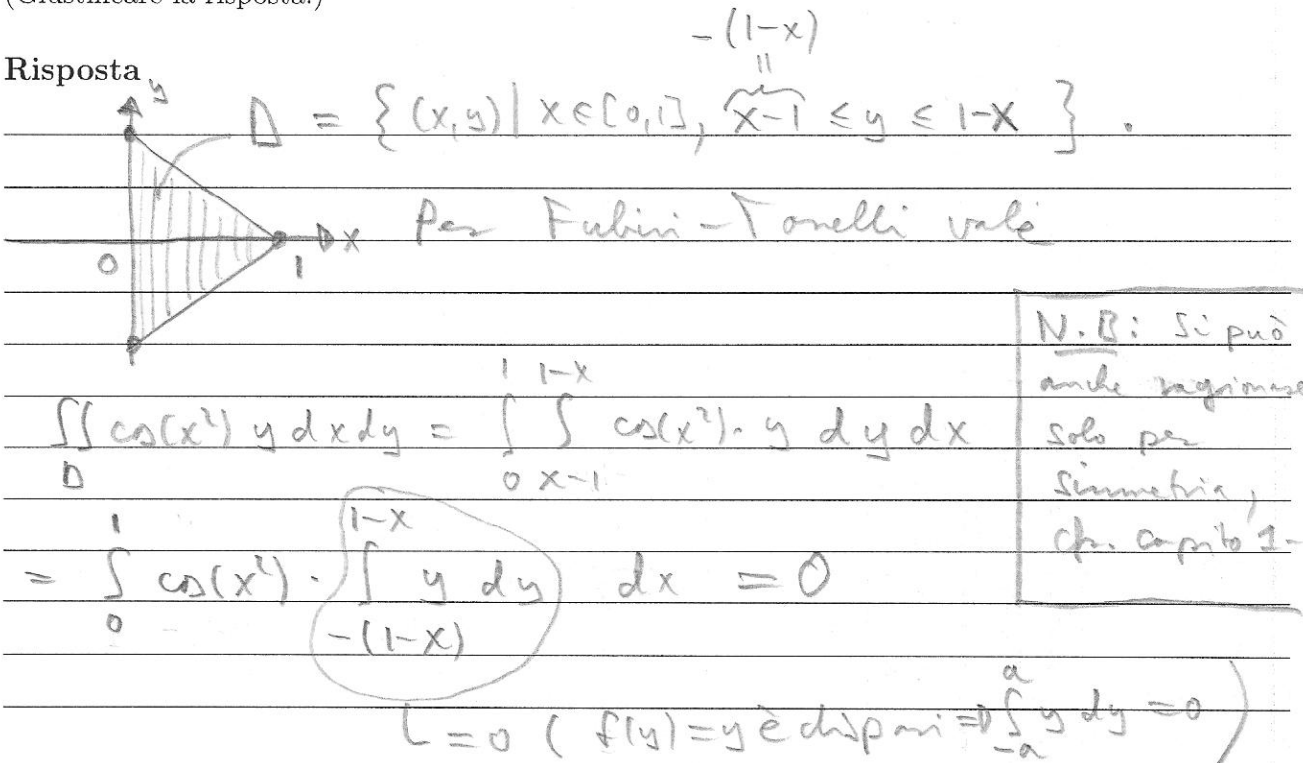 (Giustificare la risposta.)
Risposta
-(1-x)
y
D = {(x,y) | x∈[0,1], x-1 ≤ y ≤ 1-x } .
x
0
1
Per Fubini-Tonelli vale
∬_D cos(x²) y dx dy = ∫_0^1 ∫_{x-1}^{1-x} cos(x²) · y dy dx
= ∫_0^1 cos(x²) · ∫_{-(1-x)}^{1-x} y dy dx = 0
= 0 ( f(y)=y è dispari ⇒ ∫_{-a}^{a} y dy = 0 )
N.B: Si può
anche ragionare
solo per
simmetria,